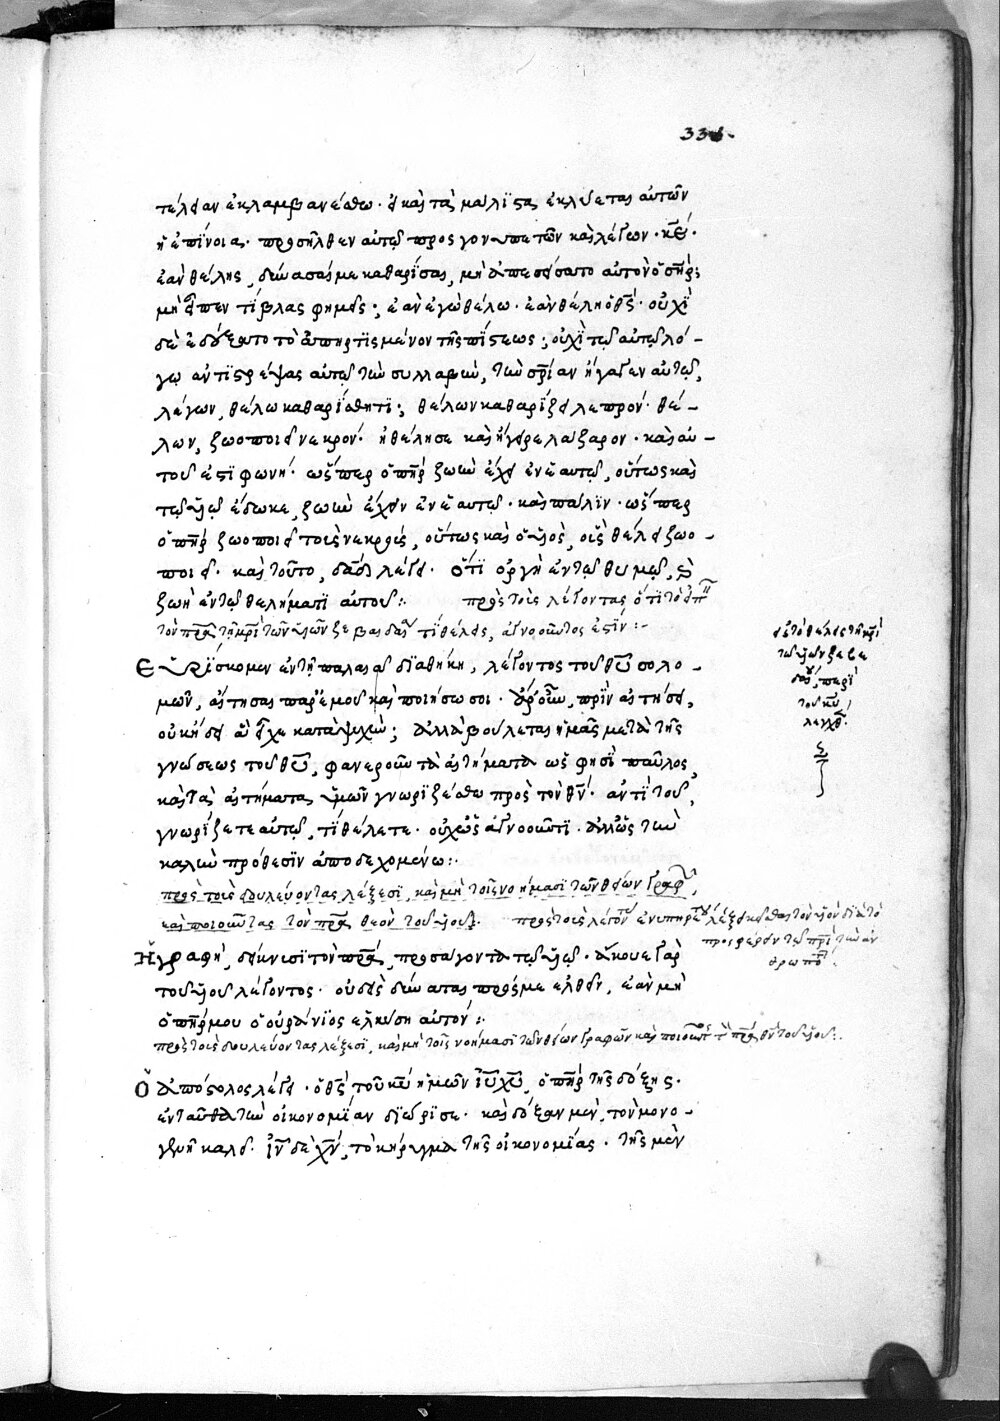 336.
ἐκλαμβανέσθω· ἐκλύεται αὐτῶν
ἡ ἐπίνοια· προσῆλθεν αὐτῷ πρὸς γονυπετῶν καὶ λέγων· κε·
ἐὰν θέλης, δύνασαί με καθαρίσαι, μὴ ἀπεώσατο αὐτὸν ὁ σηρ;
μὴ εἶπεν τί βλασφημεῖς; ἐὰν ἐγὼ θέλω· ἐὰν θέλη ὁ θς· οὐχὶ
δὲ ἐδέξατο τὸ ἀπηρτισμένον τῆς πίστεως; οὐχὶ τῷ αὐτῷ λό-
γῳ ἀντιστρέψας αὐτῷ τὴν συλλαβὴν, τὴν σρίαν ἤγαγεν αὐτῷ,
λέγων, θέλω καθαρίσθητι; θέλων καθαρίζει λεπρόν· θέ-
λων, ζωοποιεῖ νεκρόν· ἠθέλησε καὶ ἤγειρε λάζαρον· καὶ αὐ-
τοῦ ἐστὶ φωνή· ὥσπερ ὁ πηρ ζωὴν ἔχει ἐν ἑαυτῷ, οὕτως καὶ
τῷ υἱῷ ἔδωκε, ζωὴν ἔχειν ἐν ἑαυτῷ· καὶ πάλιν· ὥσπερ
ὁ πηρ ζωοποιεῖ τοὺς νεκροὺς, οὕτως καὶ ὁ υἱὸς, οὓς θέλει ζωο-
ποιεῖ· καὶ τοῦτο, δαδ λέγει· ὅτι ὀργὴ ἐν τῷ θυμῷ, καὶ
ζωὴ ἐν τῷ θελήματι αὐτοῦ:· πρὸς τοὺς λέγοντας ὅτι τὸ εἰπεῖν
τὸν πρα τῇ μρὶ τῶν υἱῶν ζεβαιδαίου τί θέλεις, ἀγνοοῦντος ἐστίν:-
εἰ τὸ θέλεις τῇ μρὶ
τῶν υἱῶν ζεβε
δαίου, περὶ
τοῦ κυ
λεγχθ.
Εὑρίσκομεν ἐν τῇ παλαιᾷ διαθήκη, λέγοντος τοῦ θυ σολο-
μῶν, αἴτησαι παρ' ἐμοῦ καὶ ποιήσω σοι· ἆρ' οὖν, πρὶν αἰτήσει,
οὐκ ἤδει ἃ εἶχε κατὰ ψυχὴν; ἀλλὰ βούλεται ἡμᾶς μετὰ τῆς
γνώσεως τοῦ θυ, φανεροῦν τὰ αἰτήματα ὥς φησὶ παῦλος,
καὶ τὰ αἰτήματα ὑμῶν γνωριζέσθω πρὸς τὸν θν· ἀντὶ τοῦ,
γνωρίζετε αὐτῷ, τί θέλετε· οὐχ ὡς ἀγνοοῦντι· ἀλλ' ὡς τὴν
καλὴν πρόθεσιν ἀποδεχομένω:·
πρὸς τοὺς δουλεύοντας λέξεσι, καὶ μὴ τοῖς νοήμασι τῶν θείων γραφῶν,
καὶ ποιοῦντας τὸν πρα θεὸν τοῦ υἱοῦ· πρὸς τοὺς λέγοντας ἐν ὑπηρέτου τάξει καθεῖναι τὸν υἱὸν διὰ τὸ
προσφέρειν τῷ πρὶ τὴν ἀν
θρωπό
Ἡ γραφὴ, δείκνυσι τὸν πρα, προσάγοντα τῷ υἱῷ· ἄκουε γὰρ
τοῦ υἱοῦ λέγοντος· οὐδεὶς δύναται πρός με ἐλθεῖν, ἐὰν μὴ
ὁ πηρ μου ὁ οὐράνιος ἑλκύση αὐτόν:·
πρὸς τοὺς δουλεύοντας λέξεσι, καὶ μὴ τοῖς νοήμασι τῶν θείων γραφῶν καὶ ποιοῦντας τὸν πρα θν τοῦ υἱοῦ:·
Ὁ ἀπόστολος λέγει· ὁ θς τοῦ κυ ἡμῶν ιυ χυ, ὁ πηρ τῆς δόξης·
ἐνταῦθα τὴν οἰκονομίαν διώρισε· καὶ δόξαν μὲν, τὸν μονο-
γενῆ καλεῖ· ιν δὲ χν, τὸ κήρυγμα τῆς οἰκονομίας· τῆς μὲν